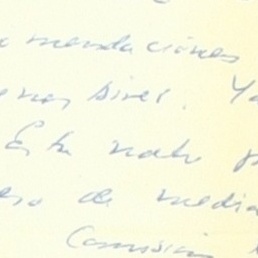 mendaciones
enos Aires. Ya
Esta nota p
eso de media
Comisión